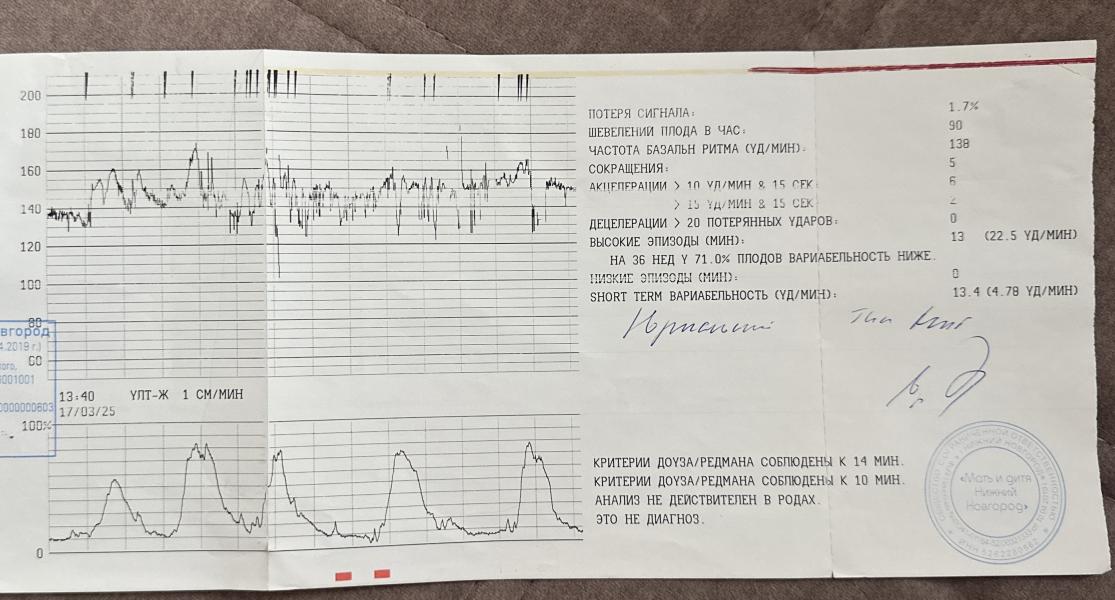 200
180
160
140
120
100
80
60
вгород
4.2019 г.)
кого,
6001001
0000000603
13:40 УЛТ-Ж 1 СМ/МИН
17/03/25
100%
0
ПОТЕРЯ СИГНАЛА: 1.7%
ШЕВЕЛЕНИЙ ПЛОДА В ЧАС: 90
ЧАСТОТА БАЗАЛЬН РИТМА (УД/МИН): 138
СОКРАЩЕНИЯ: 5
АКЦЕЛЕРАЦИИ > 10 УД/МИН & 15 СЕК: 6
> 15 УД/МИН & 15 СЕК: 2
ДЕЦЕЛЕРАЦИИ > 20 ПОТЕРЯННЫХ УДАРОВ: 0
ВЫСОКИЕ ЭПИЗОДЫ (МИН): 13 (22.5 УД/МИН)
НА 36 НЕД У 71.0% ПЛОДОВ ВАРИАБЕЛЬНОСТЬ НИЖЕ.
НИЗКИЕ ЭПИЗОДЫ (МИН): 0
SHORT TERM ВАРИАБЕЛЬНОСТЬ (УД/МИН): 13.4 (4.78 УД/МИН)
КРИТЕРИИ ДОУЗА/РЕДМАНА СОБЛЮДЕНЫ К 14 МИН.
КРИТЕРИИ ДОУЗА/РЕДМАНА СОБЛЮДЕНЫ К 10 МИН.
АНАЛИЗ НЕ ДЕЙСТВИТЕЛЕН В РОДАХ.
ЭТО НЕ ДИАГНОЗ.
«Мать и дитя
Нижний
Новгород»